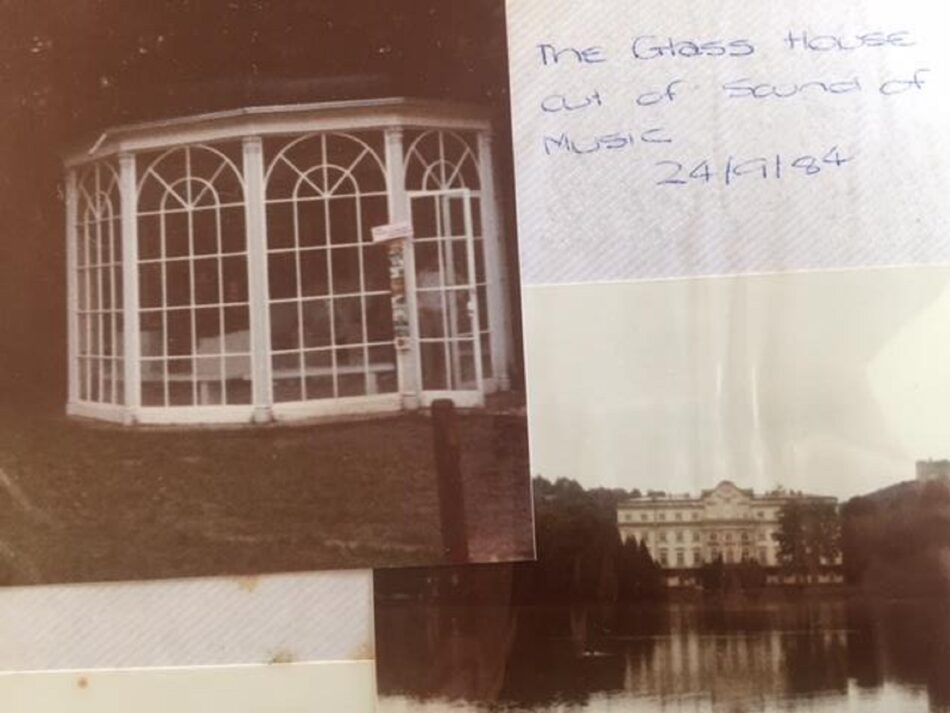 The Glass House
out of Sound of
Music
24/9/84